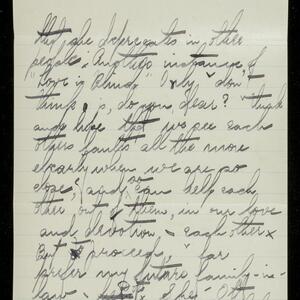 that she deprecates in other
people. Another instance of
"Love is Blind" Only I don't
think so, do you, dear? I think
and hope that we see each
others faults all the more
clearly when we are so
close, and so can help each
other, out of them, in our love
and devotion to each other.
But to proceed, "far
prefer my future family-in-
law